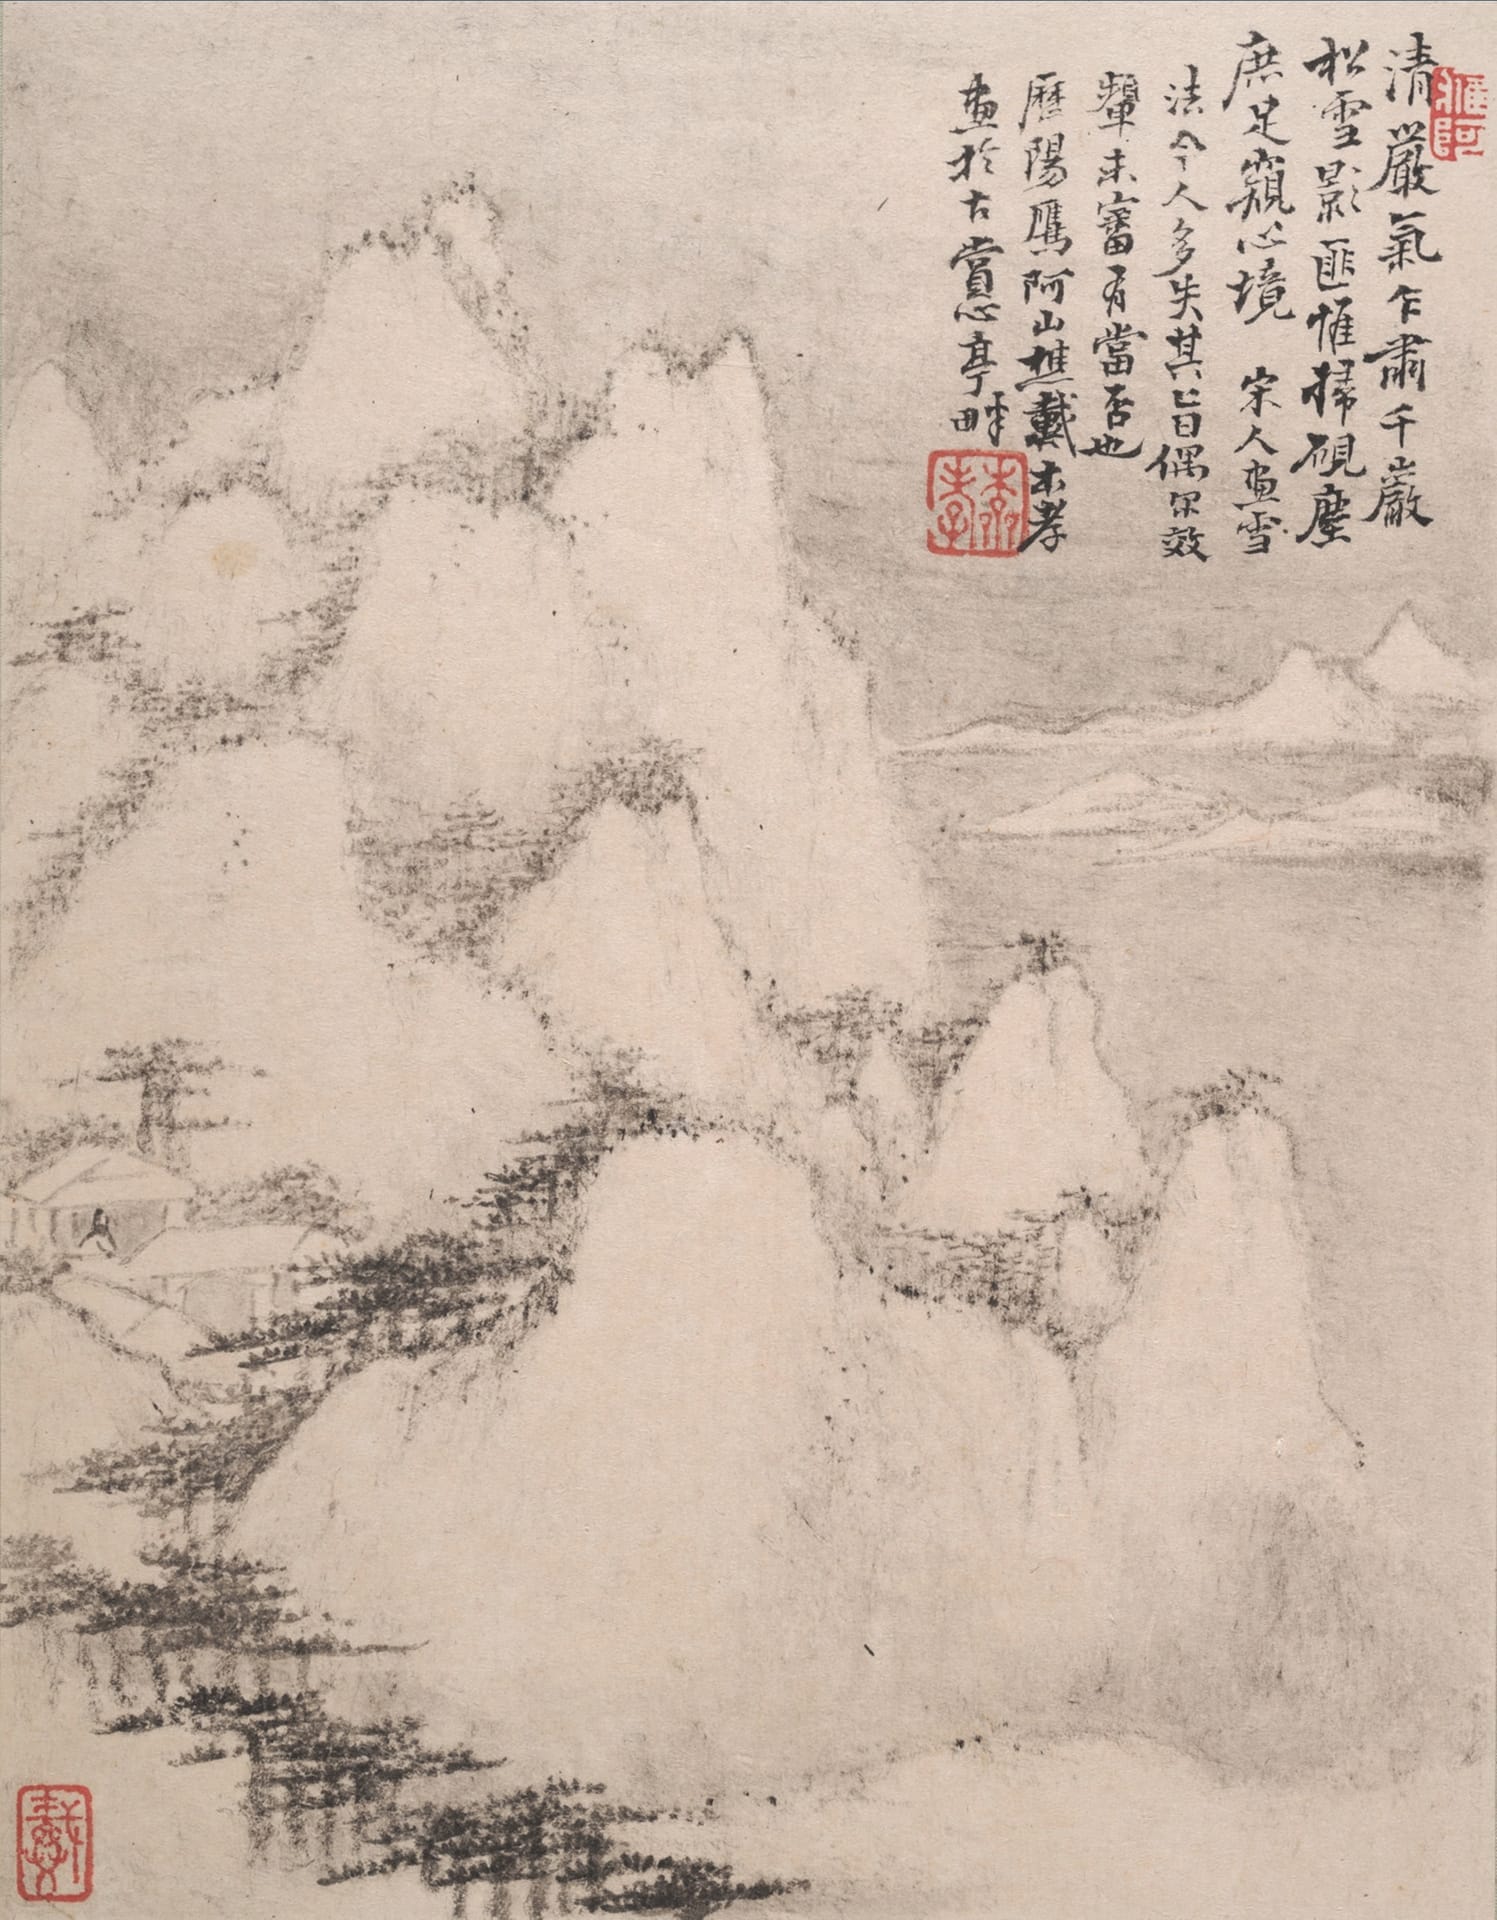 清嚴氣乍肅千巖
松雪影匪惟掃硯塵
庶足窺心境 宋人畫雪
法今人多失其旨偶尔效
顰未審有當否也
歷陽鷹阿山樵戴本孝
畫於古賞心亭畔
鷹阿
本孝
戴